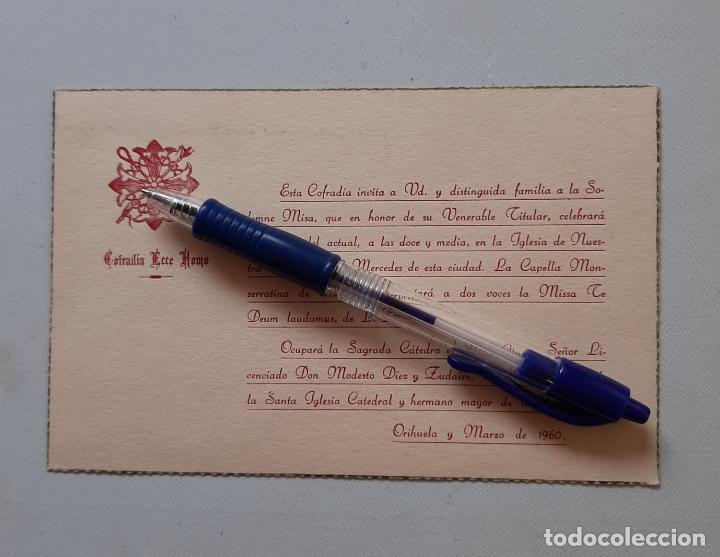 Cofradía Ecce Homo
Esta Cofradía invita a Vd. y distinguida familia a la So-
lemne Misa, que en honor de su Venerable Titular, celebrará
del actual, a las doce y media, en la Iglesia de Nues-
tra Mercedes de esta ciudad. La Capella Mon-
serratina de a dos voces la Missa Te
Deum laudamus, de L.
Ocupará la Sagrada Cátedra Señor Li-
cenciado Don Modesto Díez y Zudaire,
la Santa Iglesia Catedral y hermano mayor de
Orihuela y Marzo de 1960.
todocoleccion